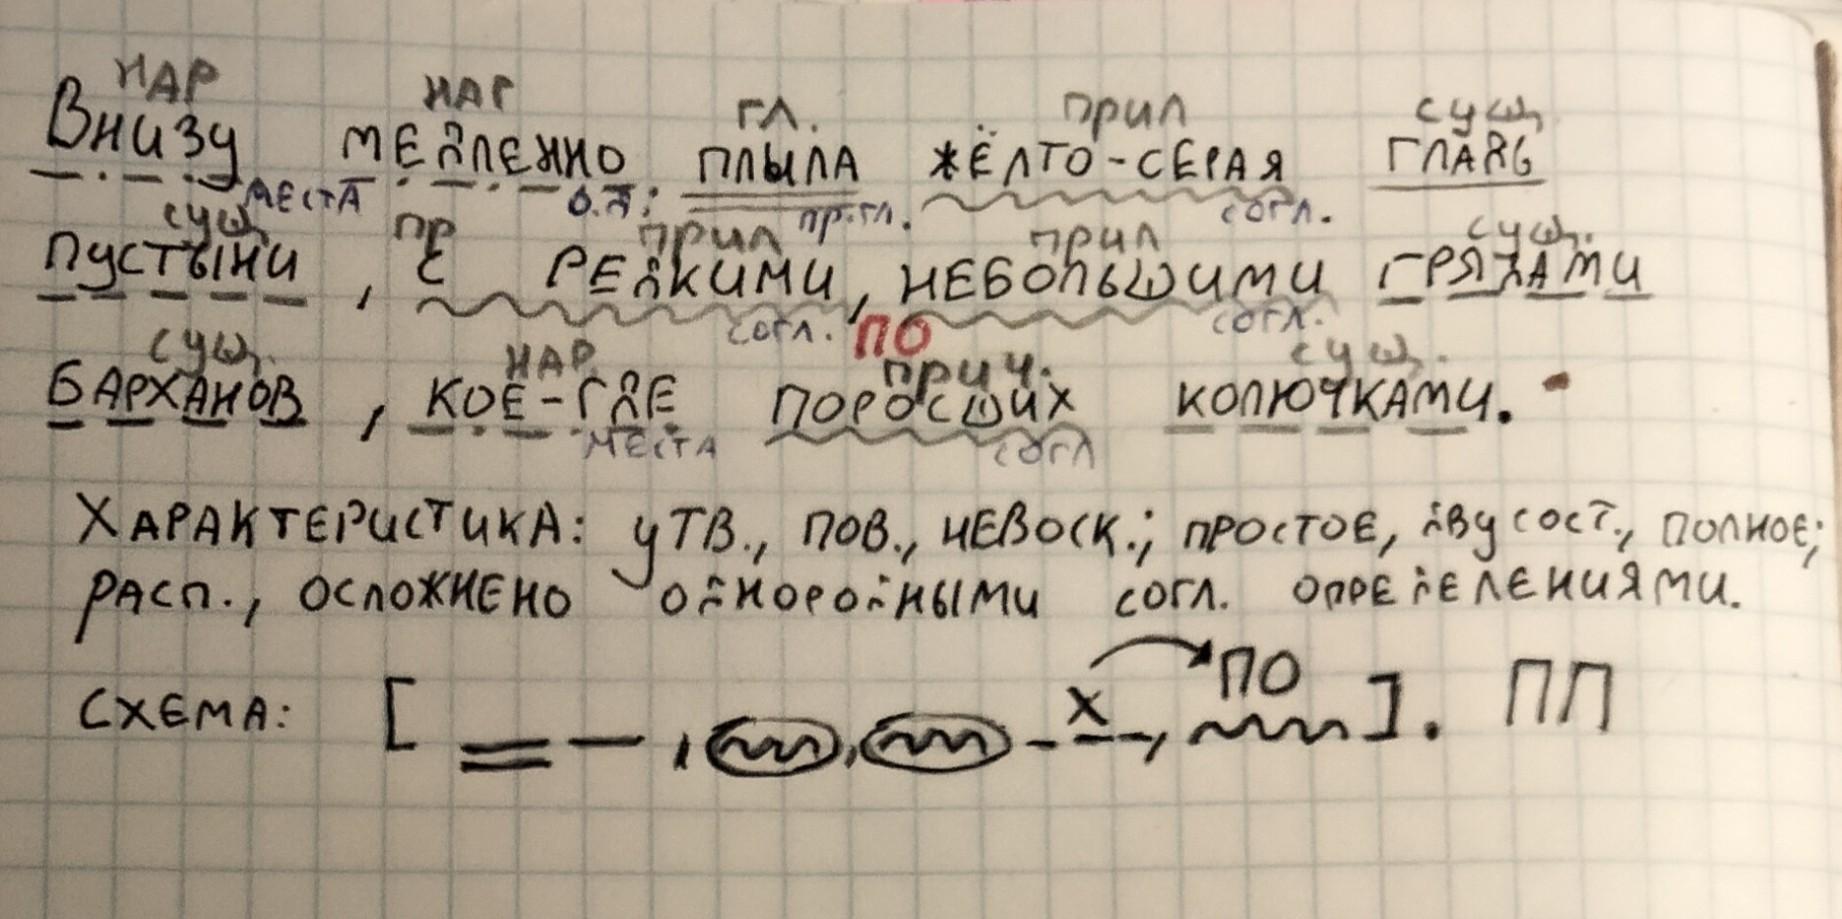 НАР НАР ГЛ. ПРИЛ СУЩ
Внизу медленно плыла жёлто-серая гладь
МЕСТА О.Д. ПР.ГЛ. СОГЛ.
СУЩ ПР ПРИЛ ПРИЛ СУЩ.
пустыни, с редкими, небольшими грядами
СОГЛ. ПО СОГЛ.
СУЩ. НАР. ПРИЧ. СУЩ.
барханов, кое-где поросших колючками.
МЕСТА СОГЛ
Характеристика: утв., пов., невоск.; простое, двусост., полное;
расп., осложнено однородными согл. определениями.
Х ПО
Схема: [ , , , ]. ПП